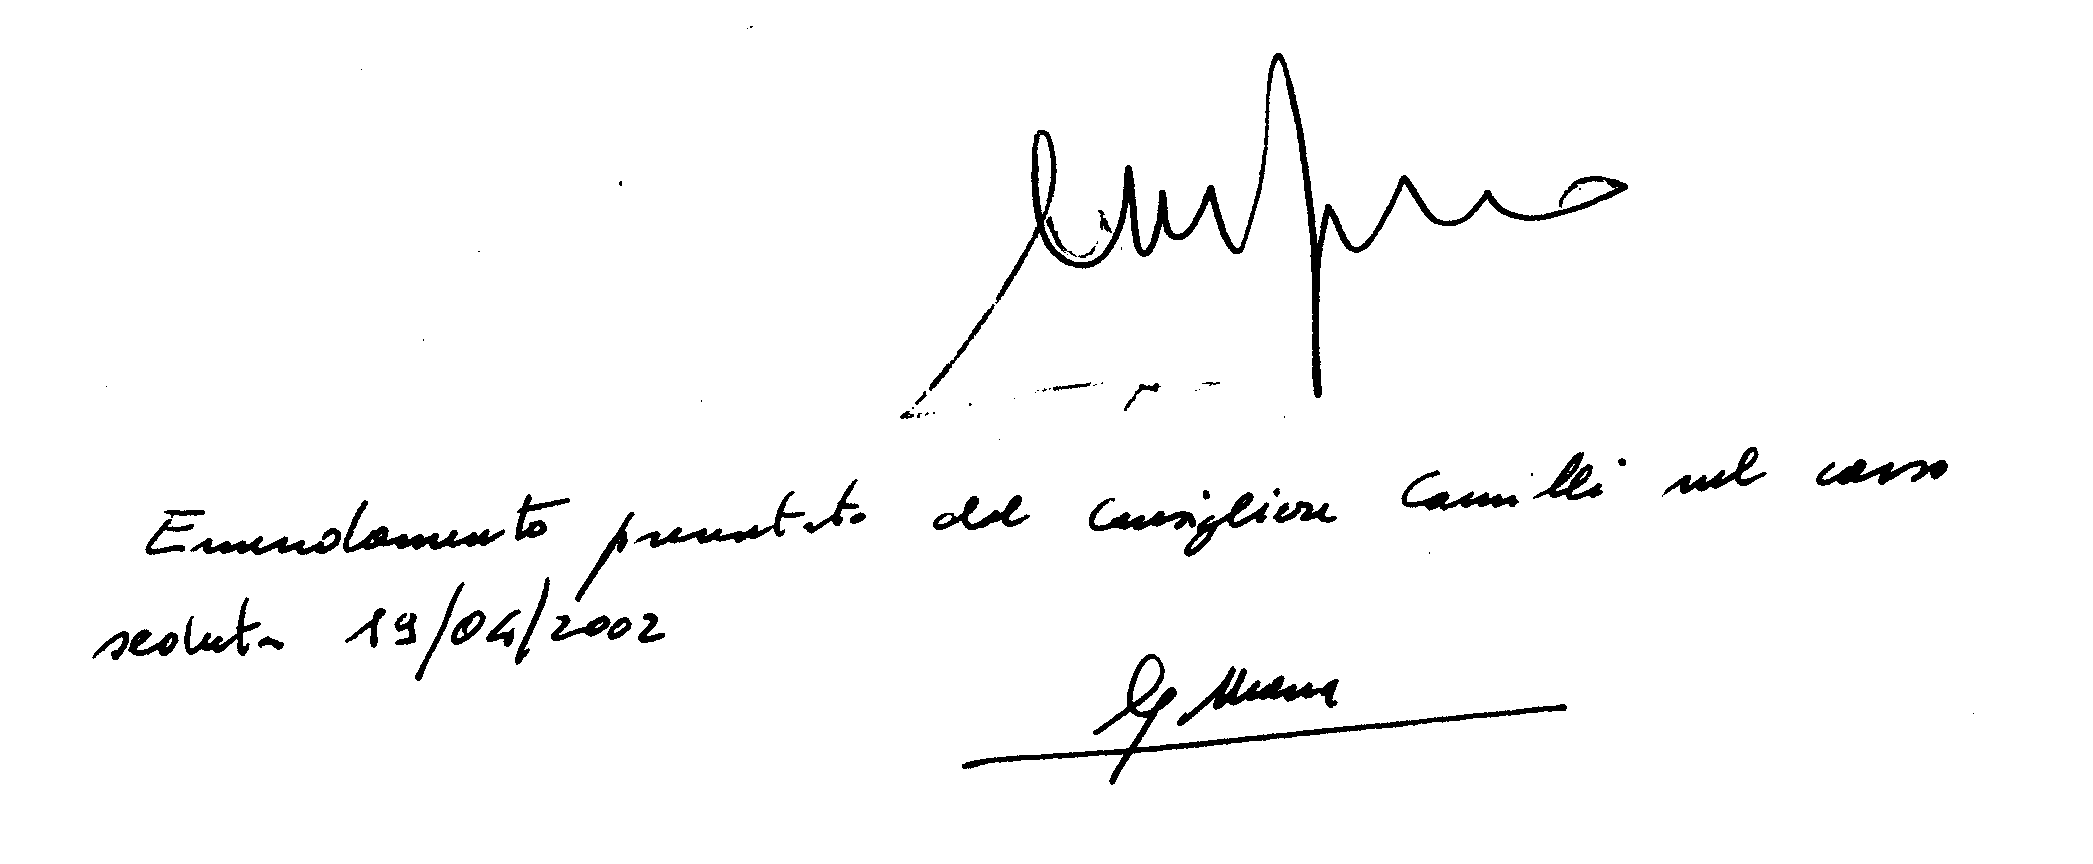 Emendamento presentato dal Consigliere Camilli nel corso
seduta 19/04/2002